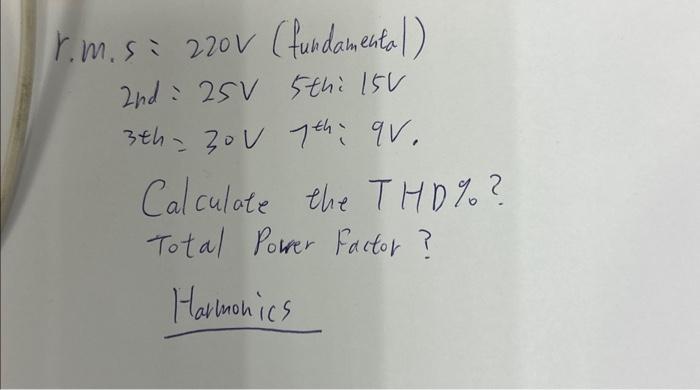 r.m.s: 220V (fundamental)
2nd: 25V 5th: 15V
3th = 30V 7th: 9V.
Calculate the THD%?
Total Power Factor?
Harmonics